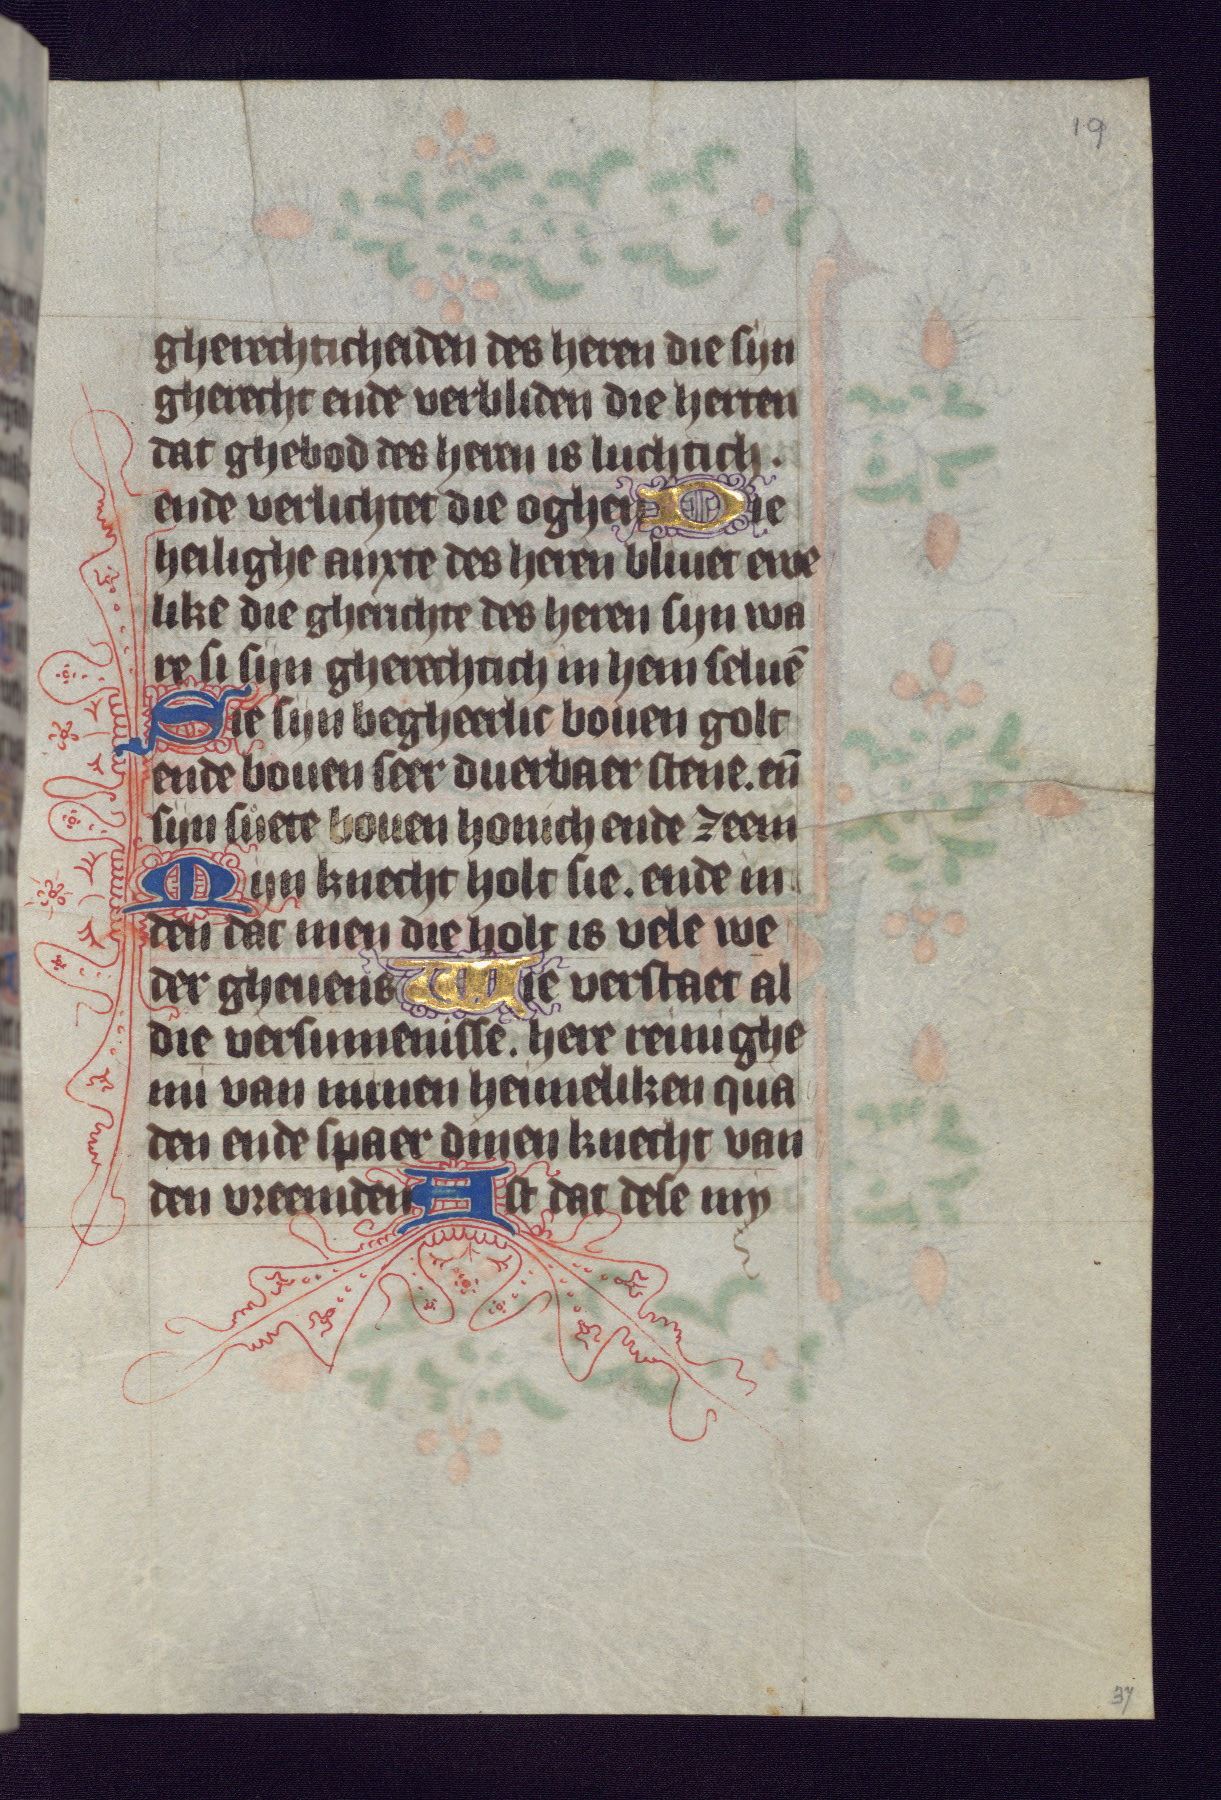 19
gherechticheiden des heren die sijn
gherecht ende verbliden die herten
dat ghebod des heren is luchtich.
ende verlichtet die oghen Die
heilighe anxte des heren bliuet ewe
like die gherichte des heren sijn wa
re si sijn gherechtich in hem seluē
Sie sijn begheerlic bouen golt
ende bouen seer duerbaer stene. eñ
sijn suete bouen honich ende zeem
Dijn knecht holt sie. ende in
den dat men die holt is vele we
der gheuens Wie verstaet al
die versumenisse. here reinighe
mi van minen heimeliken qua
den ende spaer dinen knecht van
den vreemden Ist dat dese my
37